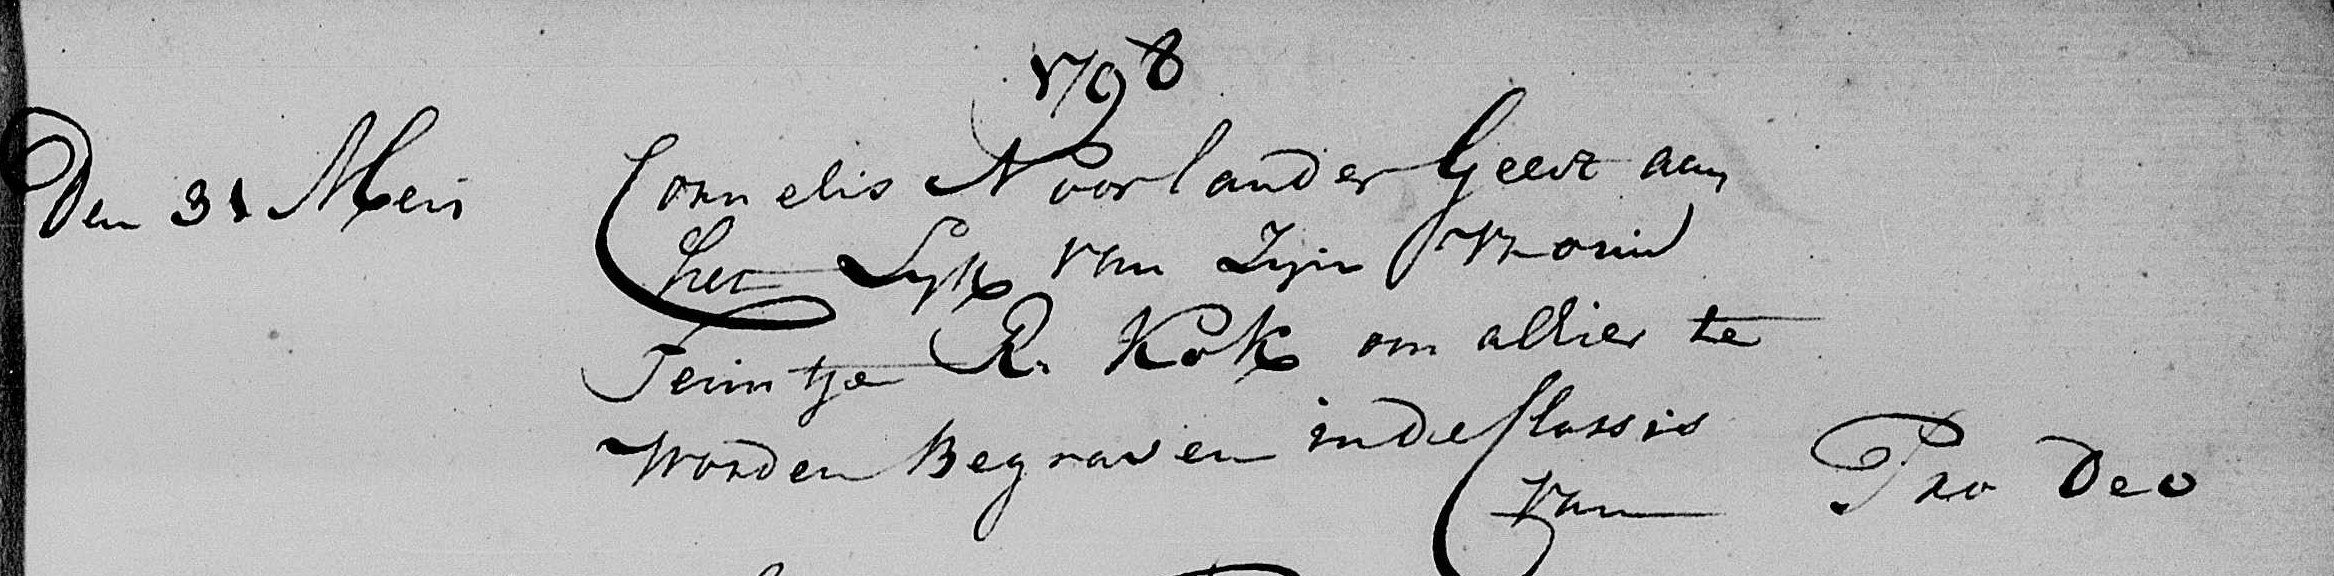 1798
Den 31 Meij Cornelis Noorlander Geeft aan
het Lyk van Zijn Vrouw
Teuntje R. Kok om alhier te
Worden Begraven in de Classis
van Pro Deo